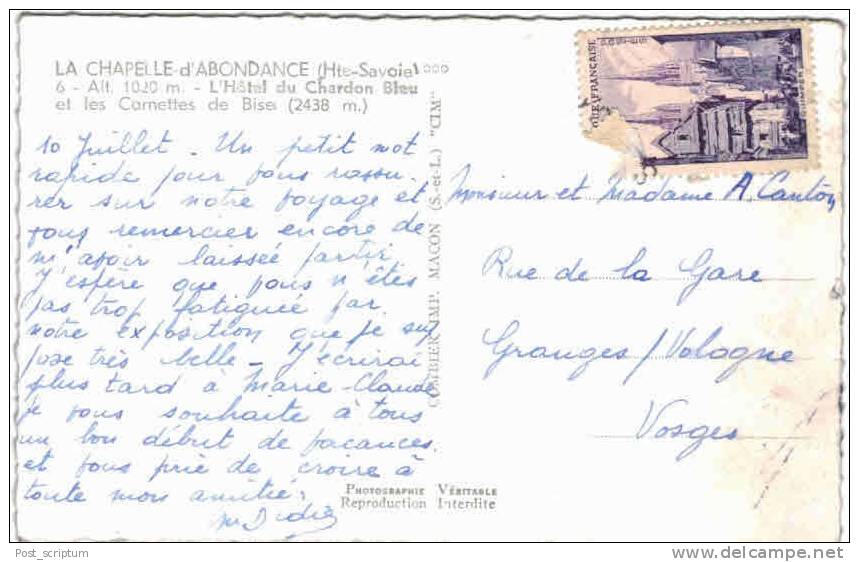 LA CHAPELLE-d'ABONDANCE (Hte-Savoie) 1000
6 - Alt. 1020 m. - L'Hôtel du Chardon Bleu
et les Cornettes de Bise (2438 m.)
10 Juillet - Un petit mot
rapide pour vous rassu
rer sur notre voyage et
vous remercier encore de
m'avoir laissée partir.
J'espère que vous n'êtes
pas trop fatiguée par
notre exposition que je sup
pose très belle - J'écrirai
plus tard à Marie-Claude
je vous souhaite à tous
un bon début de vacances.
et vous prie de croire à
toute mon amitié.
COMBIER IMP. MACON (S.-et-L.) "CIM"
PHOTOGRAPHIE VÉRITABLE
Reproduction Interdite
QUE FRANÇAISE
QUIMPER
Monsieur et Madame A. Canton
Rue de la Gare
Granges/Vologne
Vosges
Post_scriptum
www.delcampe.net